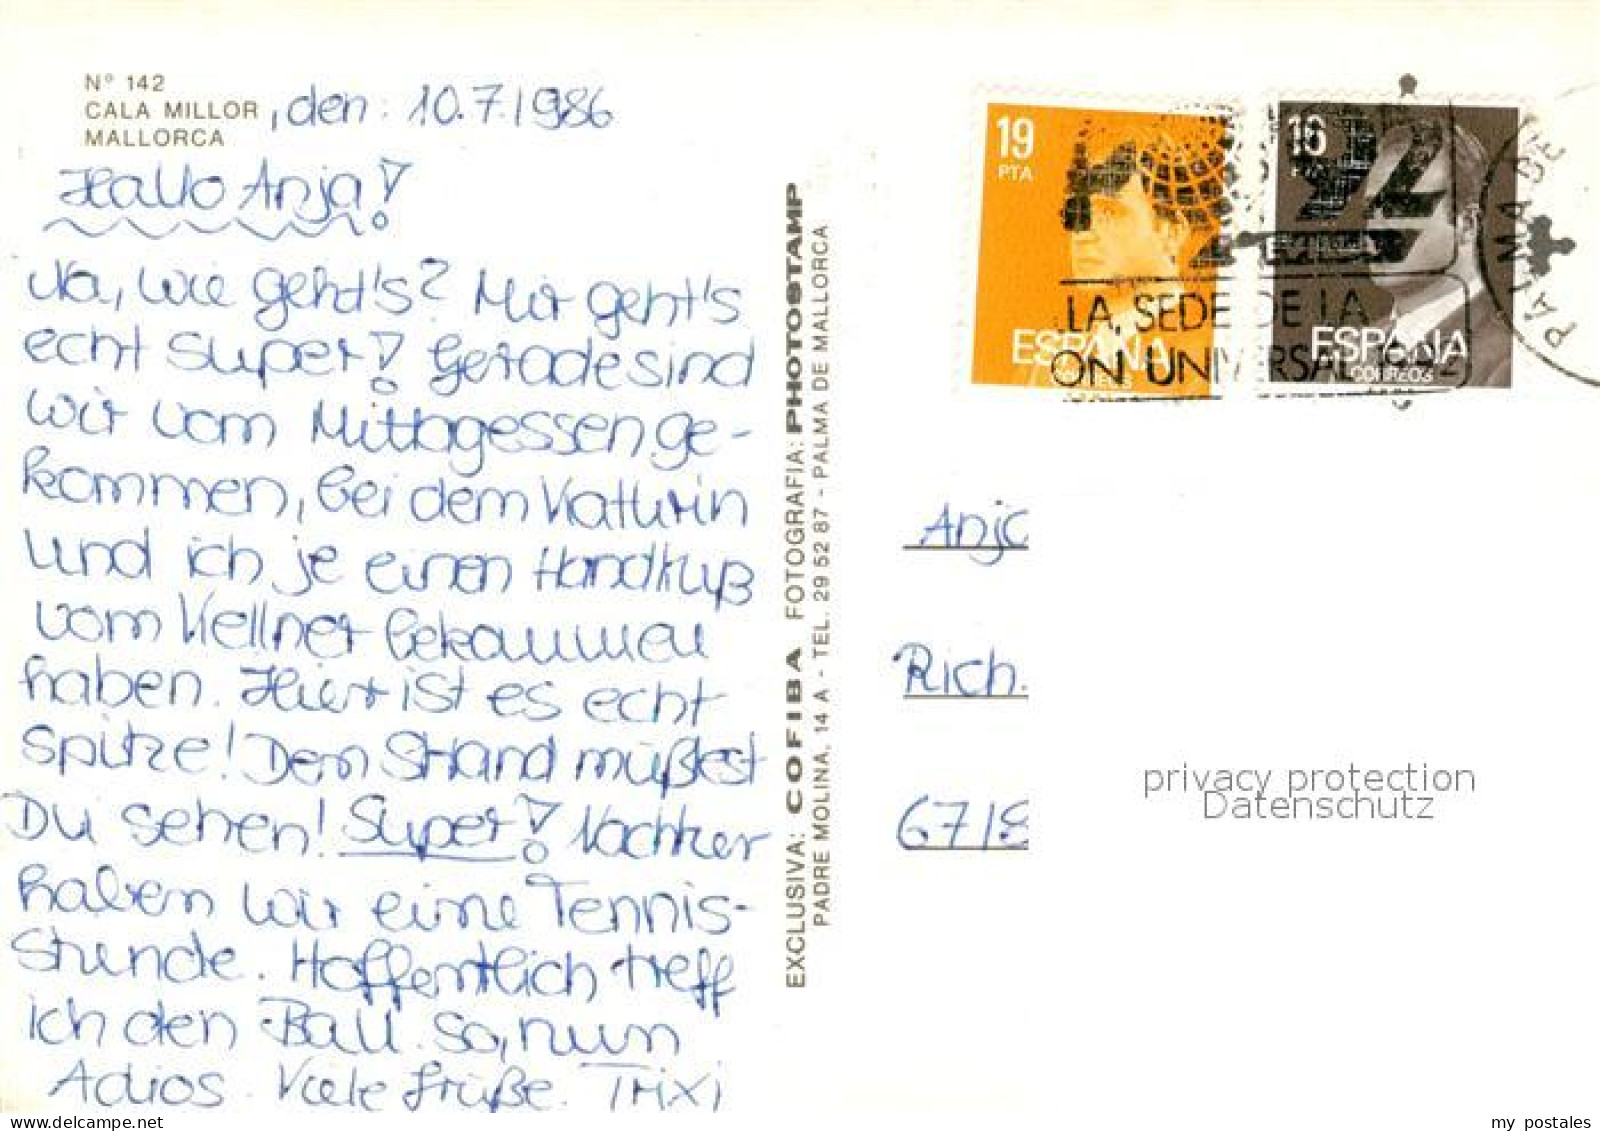 Nº 142
CALA MILLOR , den: 10.7.1986
MALLORCA
Hallo Anja!
Na, wie geht's? Mir geht's
echt super! Gerade sind
wir vom Mittagessen ge-
kommen, bei dem Kathrin
und ich je einen Handkuß
vom Kellner bekommen
haben. Hier ist es echt
spitze! Den Strand müßtest
Du sehen! Super! Nachher
haben wir eine Tennis-
stunde. Hoffentlich treff
ich den Ball. So, nun
Adios. Viele Grüße. Trixi
EXCLUSIVA: COFIBA FOTOGRAFIA: PHOTOSTAMP
PADRE MOLINA, 14 A - TEL. 29 52 87 - PALMA DE MALLORCA
19
PTA
ESPAÑA
CORREOS
16
PTA
ESPAÑA
CORREOS
LA, SEDE DE LA
ON UNIVERSAL 1992
PALMA DE
Anja
Rich.
671
privacy protection
Datenschutz
www.delcampe.net
my_postales